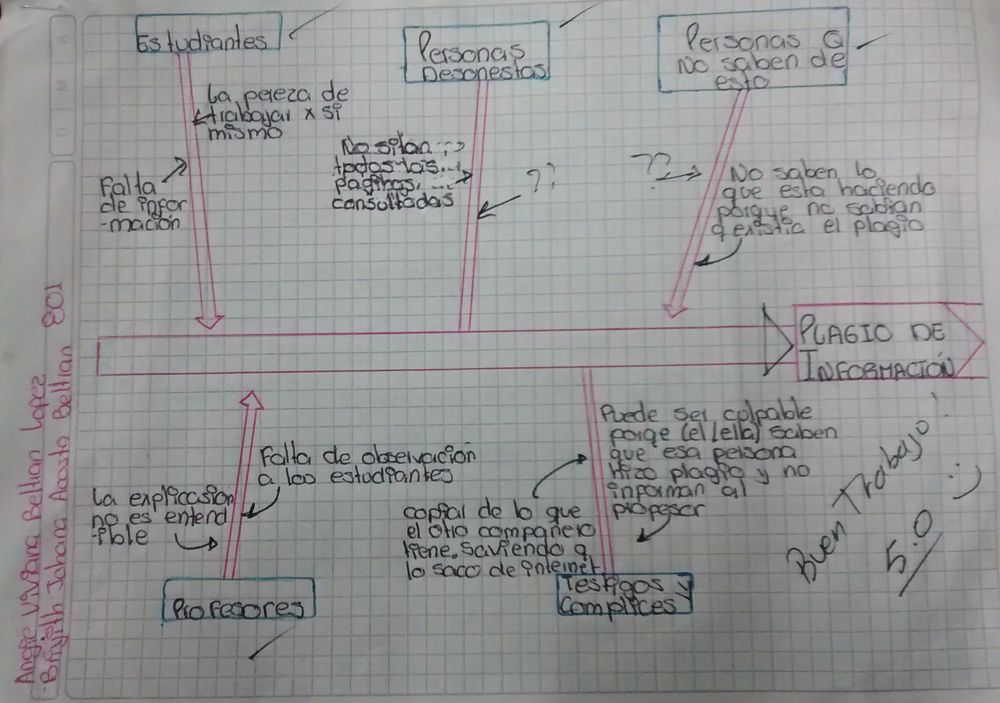 Estudiantes
Personas
Desonestas
Personas Q
No saben de
esto
La pereza de
trabajar x si
mismo
Falta
de infor
-mación
No sitan
todas las
paginas
consultadas
??
??
No saben lo
que esta haciendo
porque no sabian
q existia el plagio
PLAGIO DE
INFORMACIÓN
Falta de observación
a los estudiantes
La explicasion
no es entend
-ible
Profesores
Puede ser culpable
porqe (el/ella) saben
que esa persona
hizo plagio y no
informan al
profesor
copiar de lo que
el otro compañero
tiene. Saviendo q
lo saco de internet
Testigos y
Complices
Buen Trabajo!
:)
5.0
Angie Viviana Beltran Lopez
-Briyith Johana Acosta Beltran 801